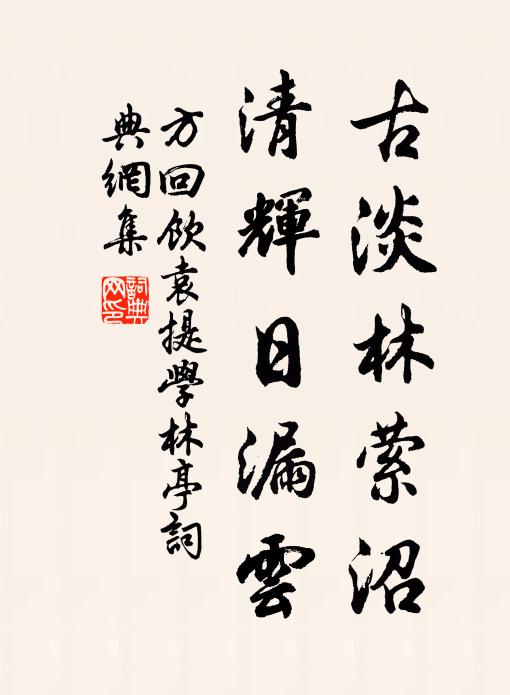 古淡林萦沼
清輝日漏雲
方回飲袁提學林亭詞
典網集
詞典网印